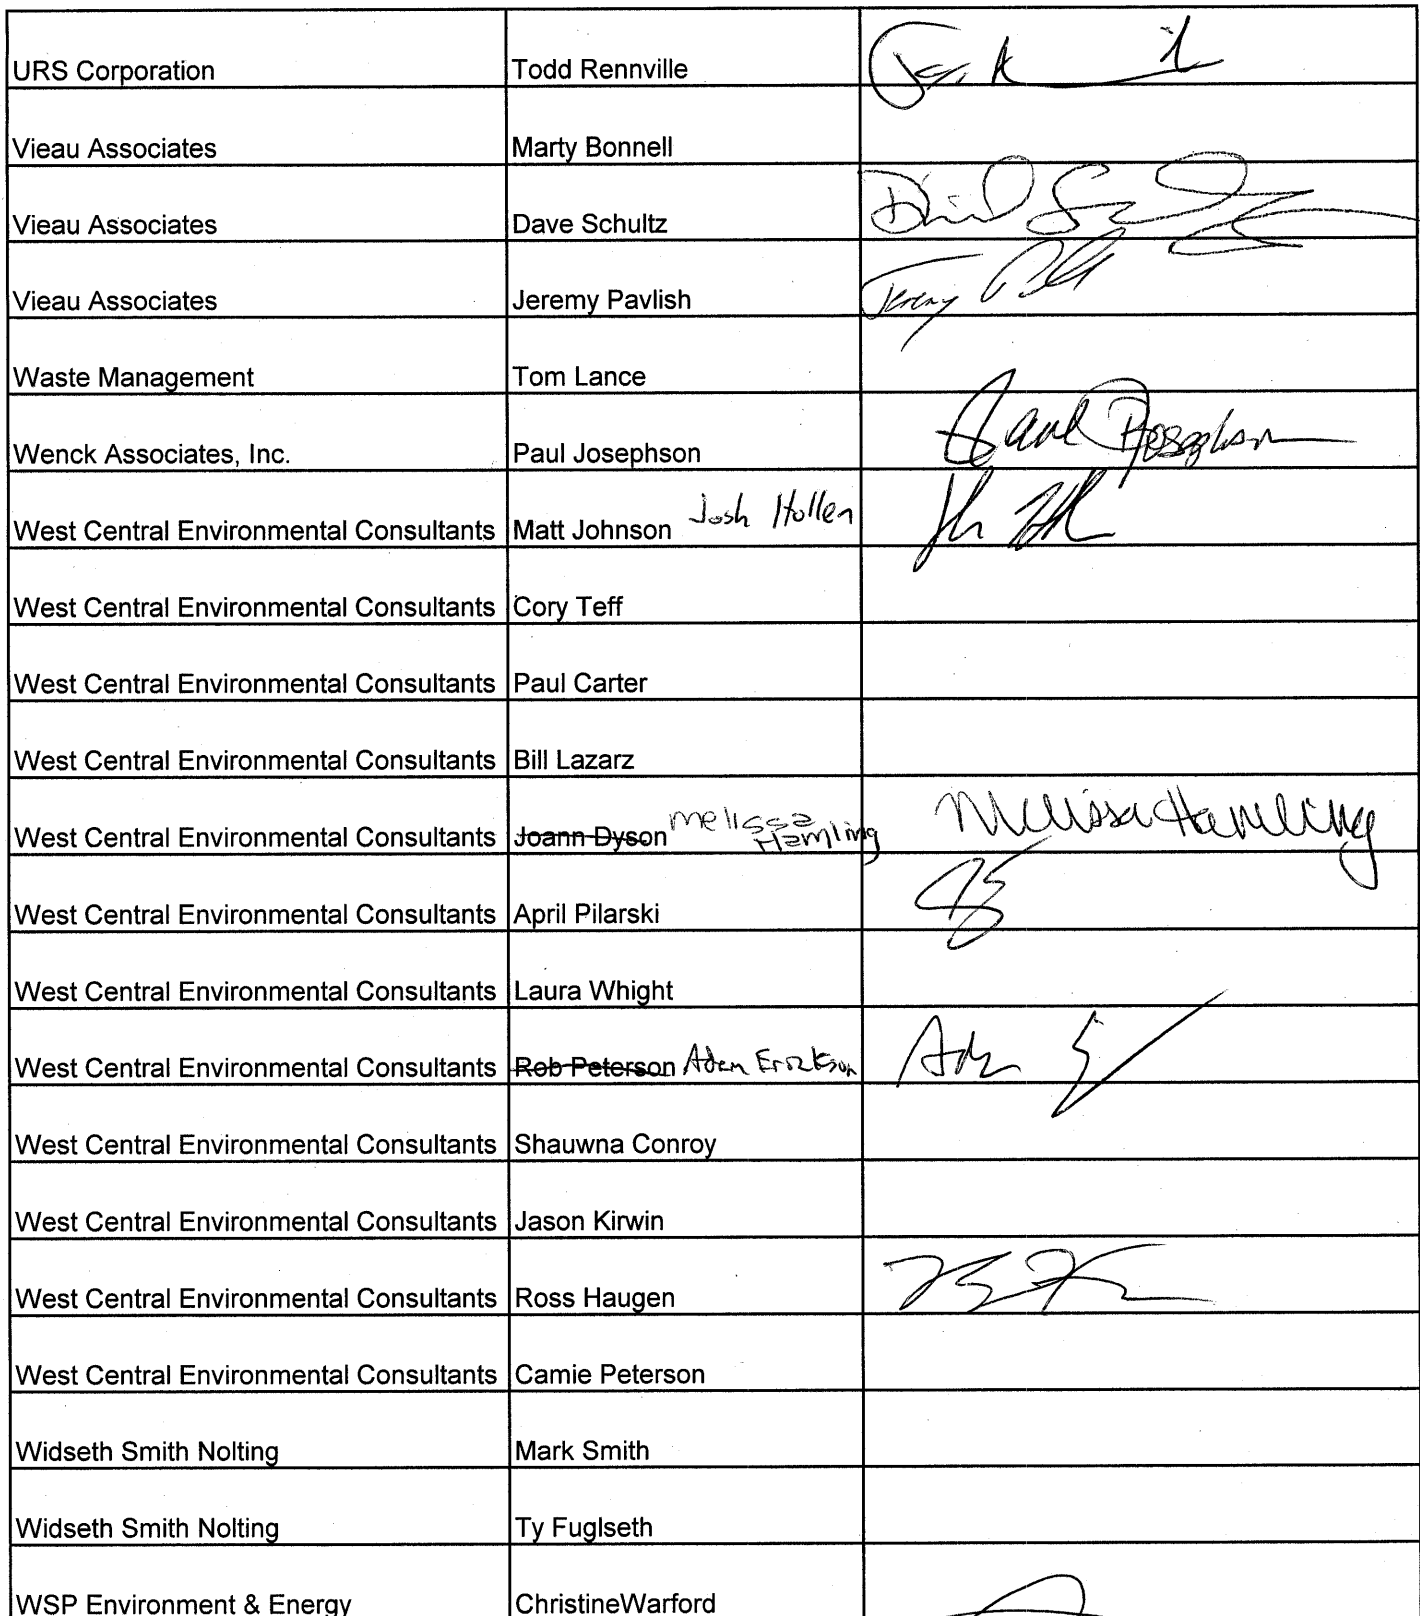 URS Corporation Todd Rennville
Vieau Associates Marty Bonnell
Vieau Associates Dave Schultz
Vieau Associates Jeremy Pavlish Jeremy
Waste Management Tom Lance
Wenck Associates, Inc. Paul Josephson Paul Josephson
West Central Environmental Consultants Matt Johnson Josh Hollen
West Central Environmental Consultants Cory Teff
West Central Environmental Consultants Paul Carter
West Central Environmental Consultants Bill Lazarz
West Central Environmental Consultants Joann Dyson Melissa Hamling Melissa Hamling
West Central Environmental Consultants April Pilarski
West Central Environmental Consultants Laura Whight
West Central Environmental Consultants Rob Peterson Adam Erickson
West Central Environmental Consultants Shauwna Conroy
West Central Environmental Consultants Jason Kirwin
West Central Environmental Consultants Ross Haugen
West Central Environmental Consultants Camie Peterson
Widseth Smith Nolting Mark Smith
Widseth Smith Nolting Ty Fuglseth
WSP Environment & Energy ChristineWarford